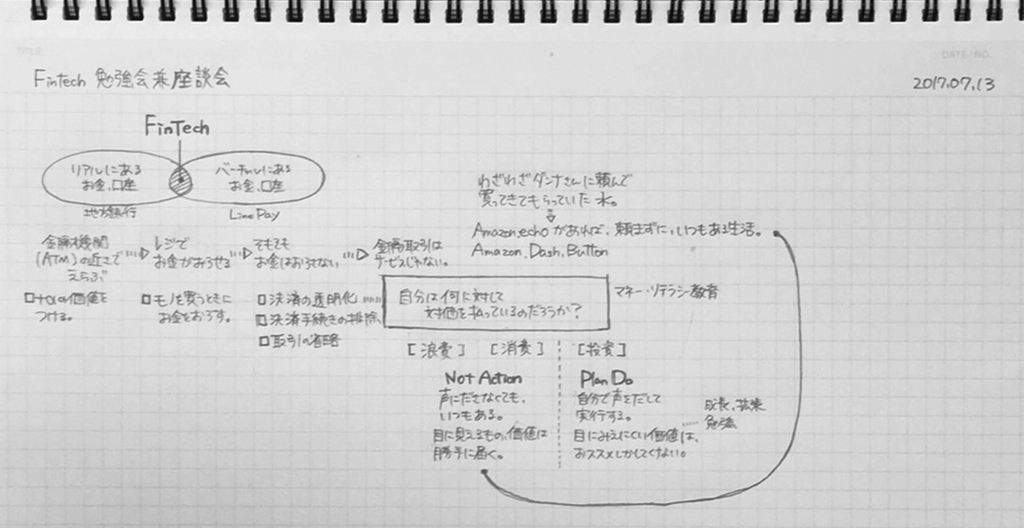 TITLE
DATE/NO.
Fintech 勉強会兼座談会
2017.07.13
FinTech
リアルにある
お金、口座
バーチャルにある
お金、口座
地方銀行
Line Pay
わざわざダンナさんに頼んで
買ってきてもらっていた水。
Amazon echoがあれば、頼まずに、いつもある生活。
Amazon Dash Button
金融機関
(ATM)の近さで
えらぶ
レジで
お金がおろせる
そもそも
お金はおろさない
金融取引は
サービスじゃない。
□+αの価値を
つける。
□モノを買うときに
お金をおろす。
□決済の透明化
□決済手続きの排除
□取引の省略
自分は何に対して
対価を払っているのだろうか?
マネー・リテラシー教育
[浪費] [消費] [投資]
Not Action
声にださなくても、
いつもある。
目に見えるもの、価値は
勝手に届く。
Plan Do
自分で声をだして
実行する。
目にみえにくい価値は、
おススメしかしてくれない。
成長、
勉強